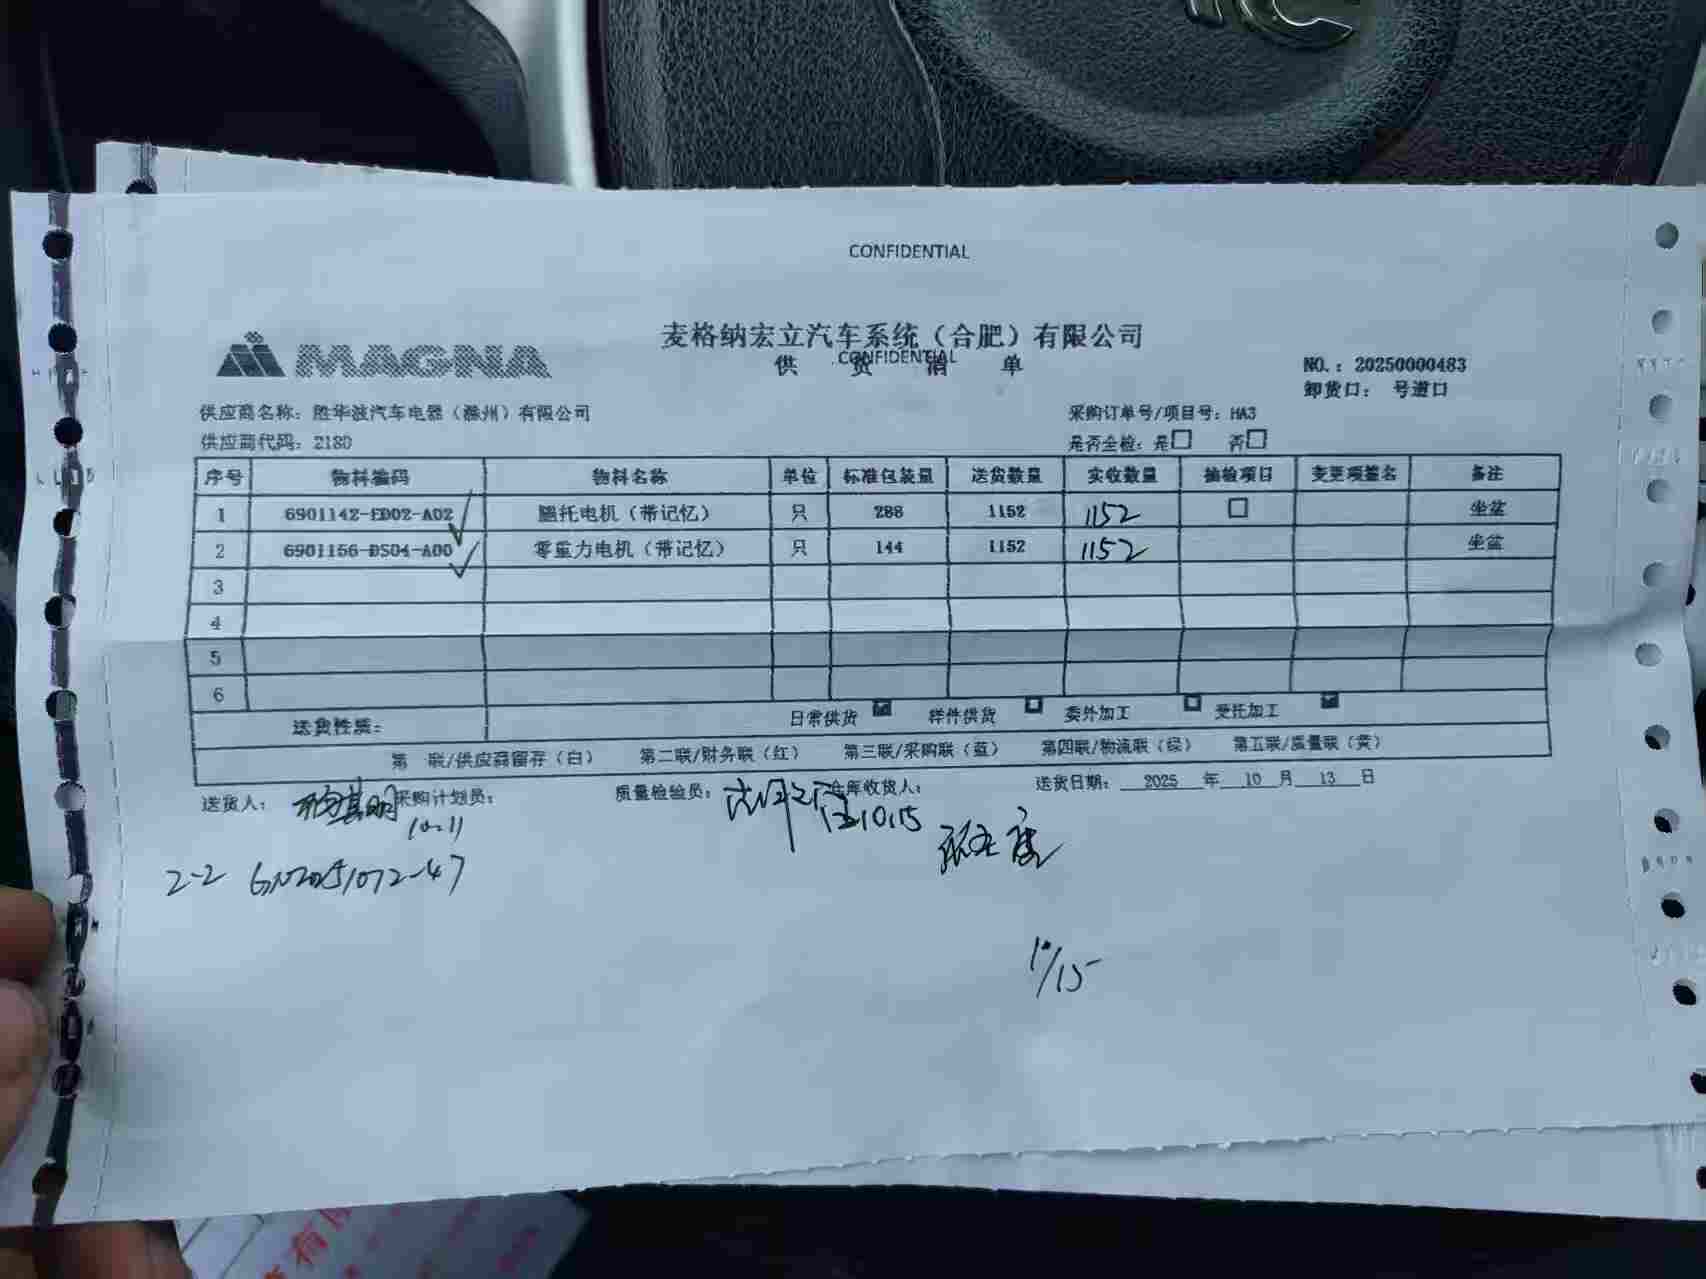 CONFIDENTIAL
MAGNA
麦格纳宏立汽车系统（合肥）有限公司
CONFIDENTIAL
供 货 清 单
NO.：20250000483
卸货口： 号道口
供应商名称：胜华波汽车电器（滁州）有限公司 采购订单号/项目号：HA3
供应商代码：2180 是否全检：是□ 否□
序号 物料编码 物料名称 单位 标准包装量 送货数量 实收数量 抽检项目 变更项签名 备注
1 6901142-ED02-A02 腿托电机（带记忆） 只 288 1152 1152 □ 坐盆
2 6901156-DS04-A00 零重力电机（带记忆） 只 144 1152 1152 坐盆
3
4
5
6
送货性质： 日常供货 样件供货 委外加工 受托加工
第 联/供应商留存（白） 第二联/财务联（红） 第三联/采购联（蓝） 第四联/物流联（绿） 第五联/质量联（黄）
送货人： 采购计划员： 质量检验员： 仓库收货人： 送货日期： 2025 年 10 月 13 日
10.11
10.15
2-2
10/15